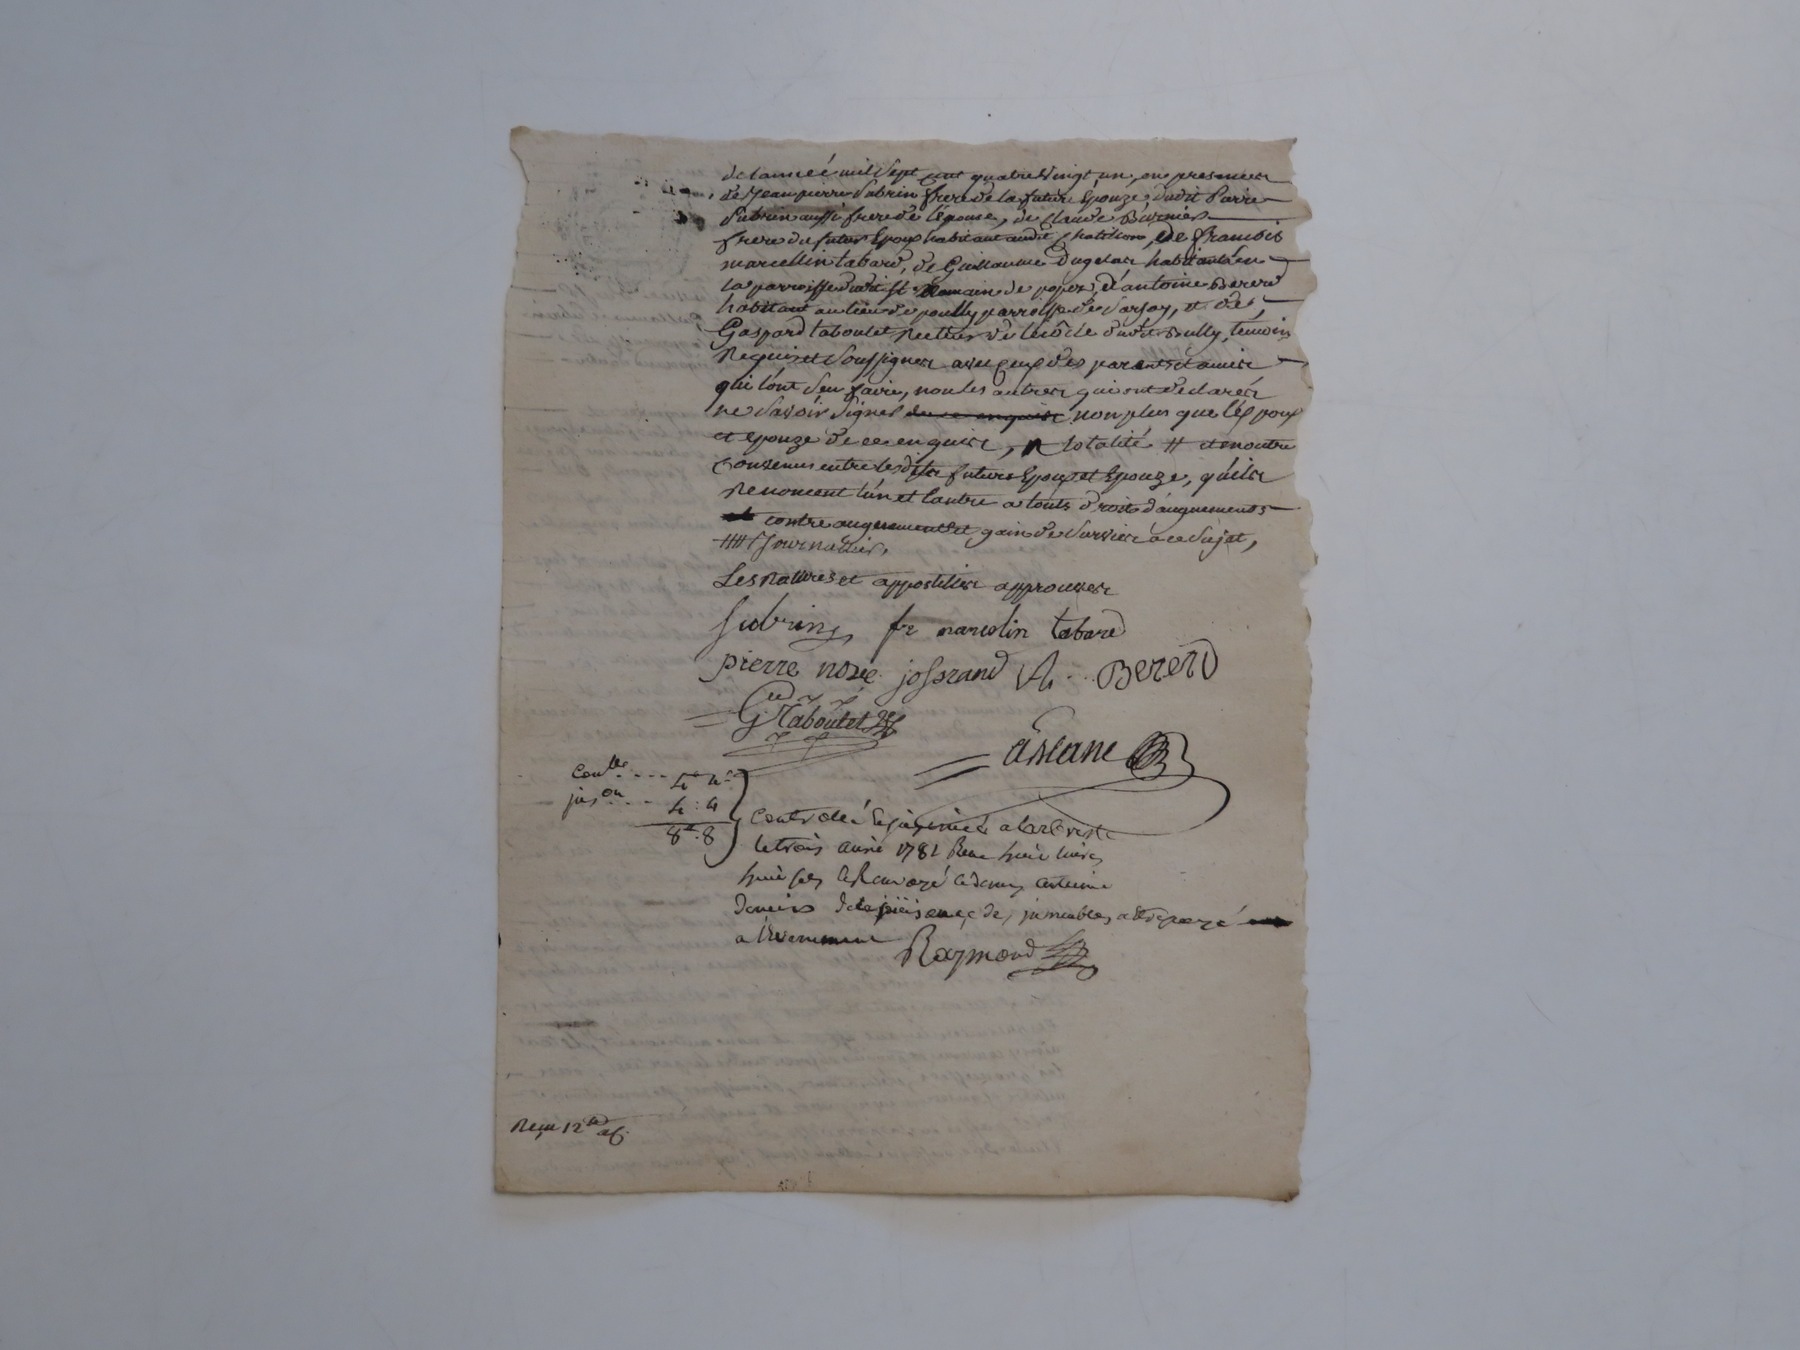 de lannéé mil Sept Cent quatre Vingt un, en presences
de Jean pierre Subrin frere de la future Epouze, dudit Pierre
Subrin aussi frere de l'épouse, de Claude Burnier
frere du futur Epoux habitant audit Chatillon, de francois
marcellin tabard, de Guillaume Dugelas habitants en
la parroisse dudit St Romain de popez, d'antoine Bererd
habitant au lieu de poully parroisse de Sarsay, et de
Gaspard taboulet Recteur de l'école dudit Sully, témoins
Requis et Soussignes avec Ceux des parents et amis
qui l'ont Sçu faire, non les autres qui ont declarés
ne Savoir Signer de ce enquis non plus que l'Epoux
et Epouze de ce enquis, totalité # et en outre
Convenus entre lesdits futurs Epoux et Epouze, qu'ils
Renoncent l'un et l'autre a touts droits d'augments
contre augements et gain de Survies a ce Sujet,
#### Journallier,
Les Ratures et appostilles approuvées
Subrin fr marcelin tabard
pierre noze josserand A. Bererd
G. Taboulet
aslane
Conlle ... 4# 4s
jnson ... 4 : 4
8# : 8
Controllé & jnsinué a larbresle
le trois avril 1781 Reçu huit livres
huit sols le Renvoyé Centieme
denier jmmeubles
a l'evenement Raymond
Reçu 12#